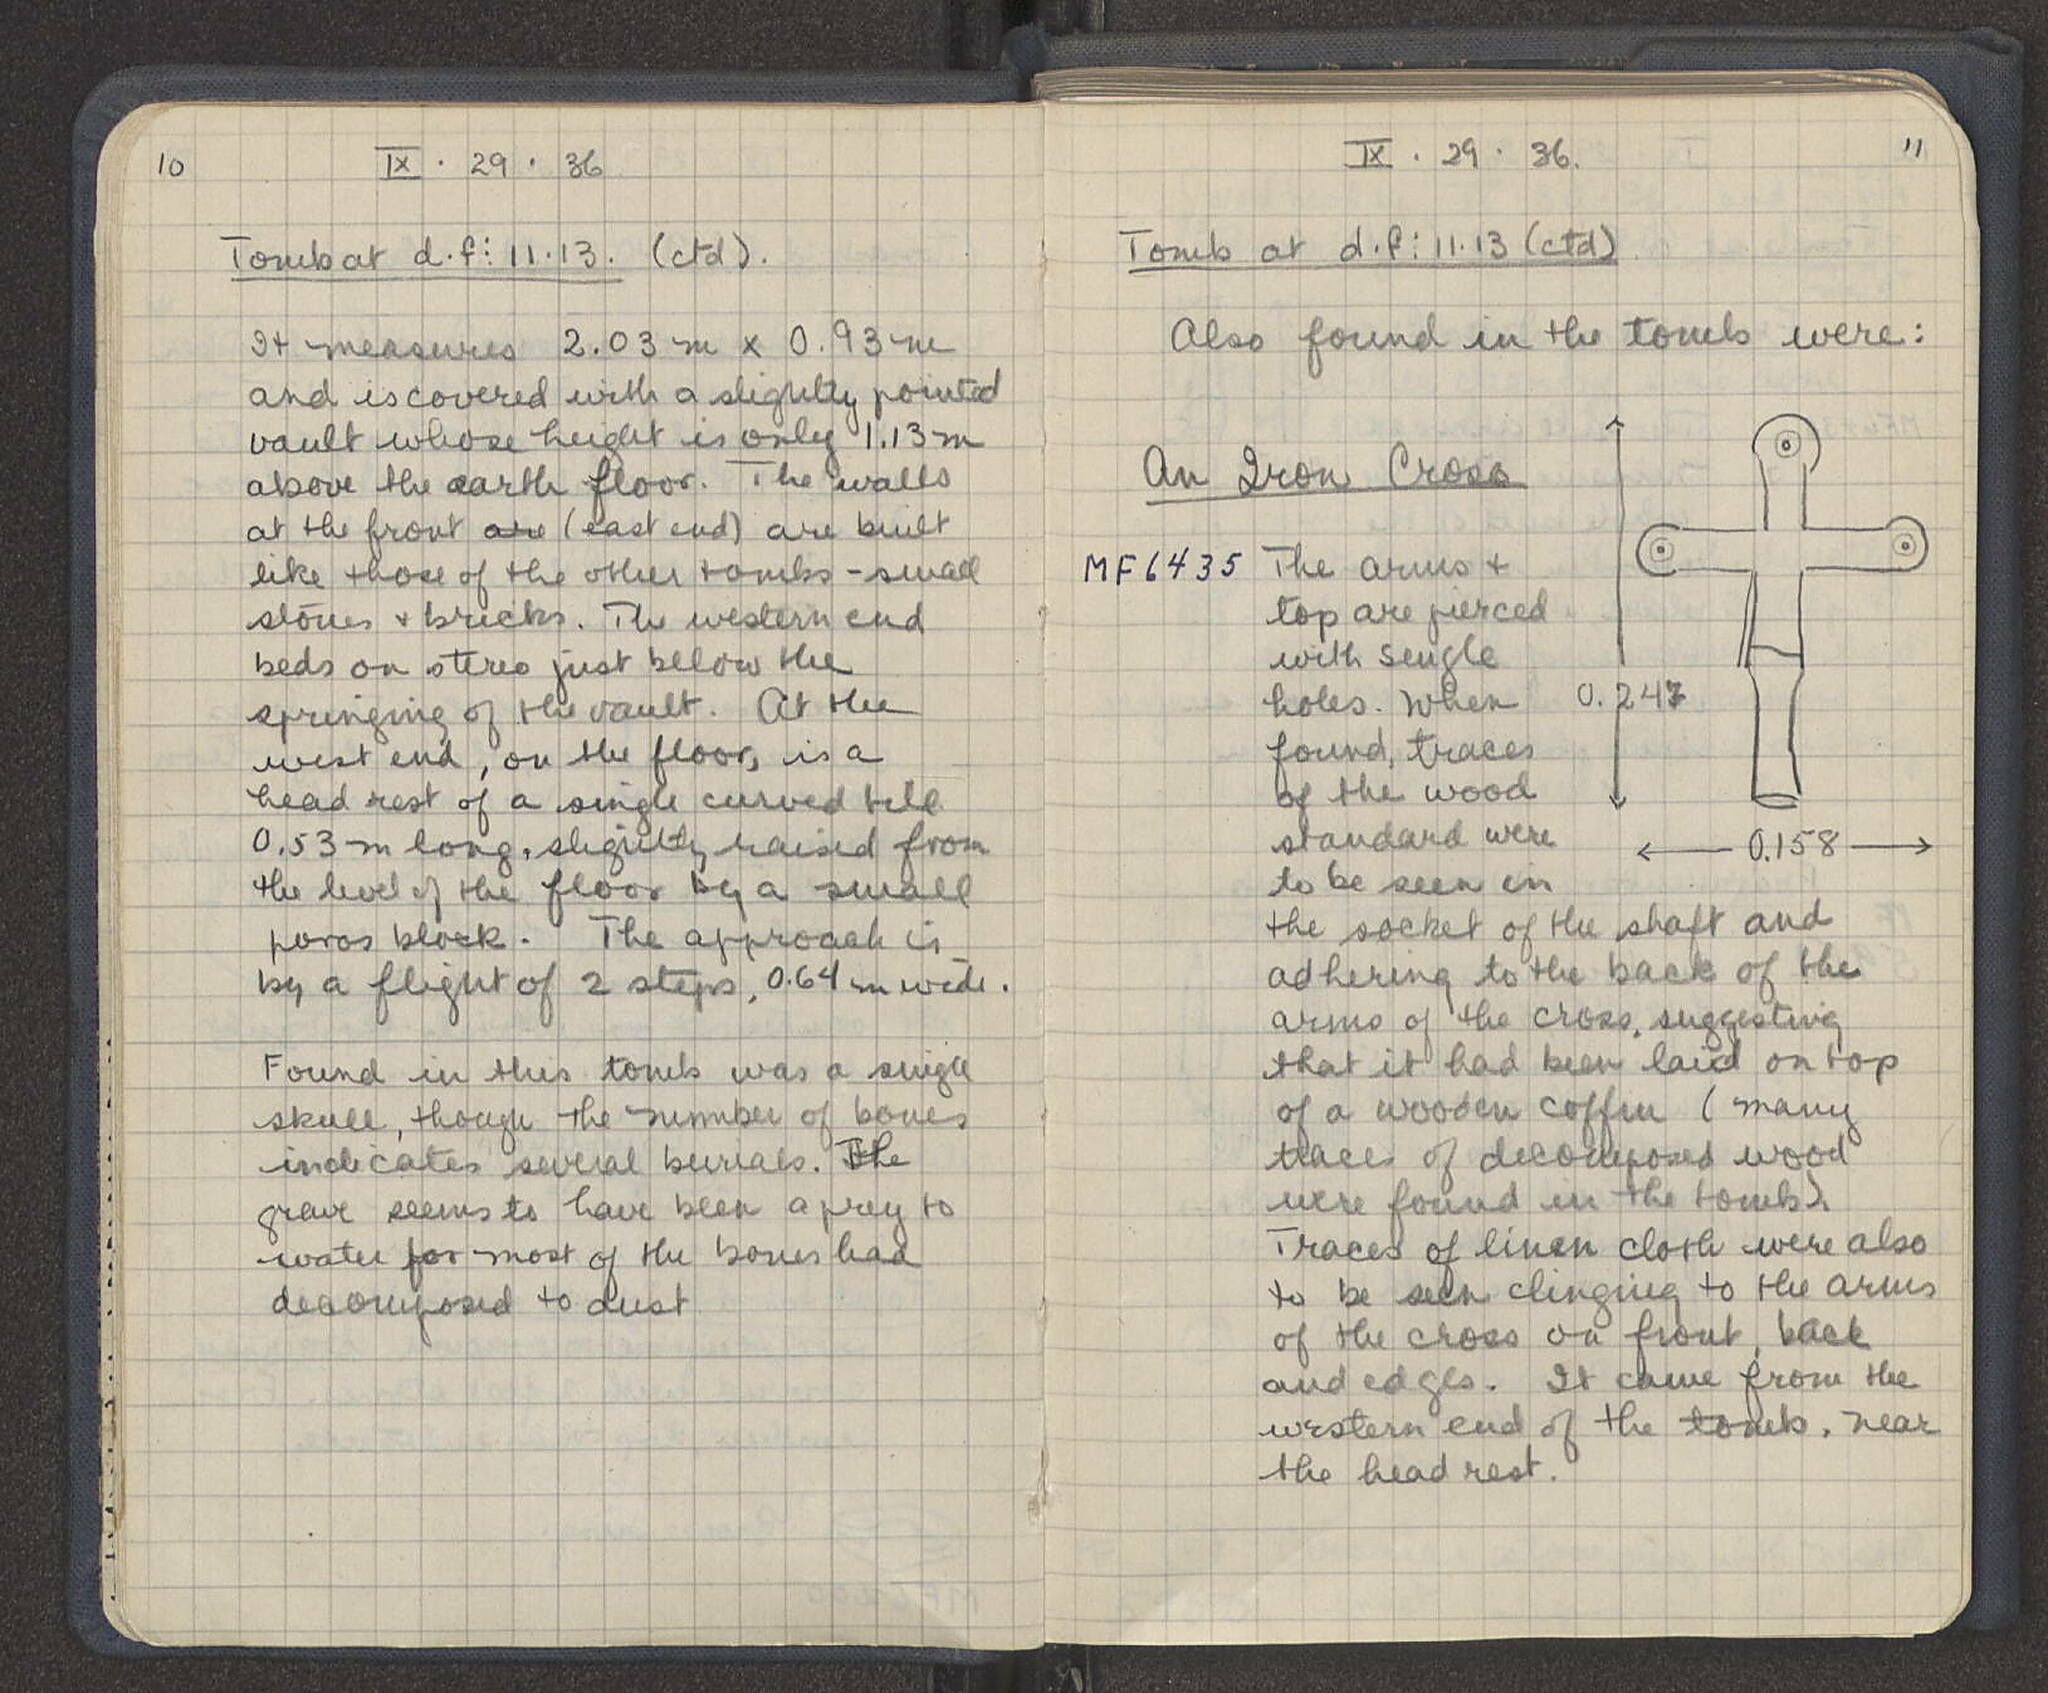 10
IX · 29 · 36
Tomb at d.f: 11.13. (ctd).
It measures 2.03 m x 0.93 m
and is covered with a slightly pointed
vault whose height is only 1.13 m
above the earth floor. The walls
at the front are (east end) are built
like those of the other tombs - small
stones + bricks. The western end
beds on stereo just below the
springing of the vault. At the
west end, on the floor, is a
head rest of a single curved tile
0.53 m long, slightly raised from
the level of the floor by a small
poros block. The approach is
by a flight of 2 steps, 0.64 m wide.
Found in this tomb was a single
skull, though the number of bones
indicates several burials. The
grave seems to have been a prey to
water for most of the bones had
decomposed to dust
IX · 29 · 36.
11
Tomb at d.f: 11.13 (ctd)
Also found in the tomb were:
An Iron Cross
MF6435 The arms +
top are pierced
with single
holes. When
found, traces
of the wood
standard were
to be seen in
the socket of the shaft and
adhering to the back of the
arms of the cross, suggesting
that it had been laid on top
of a wooden coffin (many
traces of decomposed wood
were found in the tomb).
Traces of linen cloth were also
to be seen clinging to the arms
of the cross on front, back
and edges. It came from the
western end of the tomb, near
the head rest.
0.247
0.158